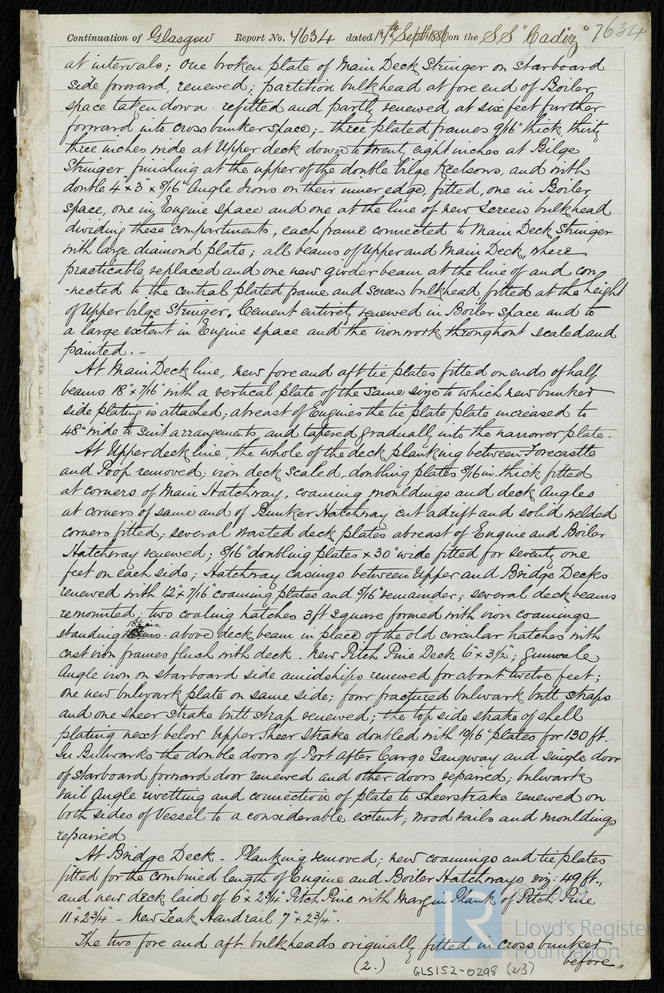 Continuation of Glasgow Report No. 7634 dated 14th Septr 1886 on the S.S. "Cadiz" 7634
at intervals; One broken plate of Main Deck Stringer on starboard
side forward, renewed; partition bulkhead at fore end of Boiler
space taken down refitted and partly renewed at six feet further
forward into cross bunker space; - three plated frames 9/16" thick thirty
three inches wide at Upper deck down to twenty eight inches at Bilge
Stringer finishing at the upper of the double bilge Keelsons, and with
double 4 x 3" x 8/16" Angle Irons on their inner edge, fitted, one in Boiler
space, one in Engine space and one at the line of new Screen bulkhead
dividing these compartments, each frame connected to Main Deck Stringer
with large diamond plate; all beams of Upper and Main Deck, where
practicable replaced and one new girder beam at the line of and con
-nected to the central plated frame and screen bulkhead fitted at the height
of Upper bilge Stringer. Cement entirely renewed in Boiler space and to
a large extent in Engine space and the ironwork throughout scaled and
painted. -
At Main Deck line, new fore and aft tie plates fitted on ends of half
beams 18" x 7/16" with a vertical plate of the same size to which new bunker
side plating is attached; abreast of Engines the tie plate plate increased to
48" wide to suit arrangements, and tapered gradually into the narrower plate.
At Upper deck line, the whole of the deck planking between Forecastle
and Poop removed; iron deck scaled, doubling plates 8/16 in. thick fitted
at corners of Main Hatchway, coaming mouldings and deck Angles
at corners of same and of Bunker Hatchway cut adrift and solid welded
corners fitted; several wasted deck plates abreast of Engine and Boiler
Hatchway renewed; 8/16" doubling plates x 30" wide fitted for seventy one
feet on each side; Hatchway casings between Upper and Bridge Decks
renewed with 12 x 7/16 coaming plates and 5/16 remainder; several deck beams
remounted; two coaling hatches 3ft square formed with iron coamings
standing 18 ins. above deck beam in place of the old circular hatches with
cast iron frames flush with deck. New Pitch Pine Deck 6" x 3½"; gunwale
Angle iron on starboard side amidships renewed for about twelve feet;
one new bulwark plate on same side; four fractured bulwark butt straps
and one sheerstrake butt strap renewed; the top side strake of shell
plating next below Upper Sheer strake doubled with 10/16" plates for 130 ft.
In Bulwarks the double doors of Port After Cargo Gangway and single door
of Starboard forward door renewed and other doors repaired; bulwark
rail Angle rivetting and connection of plate to sheerstrake renewed on
both sides of Vessel to a considerable extent; wood rails and mouldings
repaired
At Bridge Deck - Planking removed; new coamings and tie plates
fitted for the combined length of Engine and Boiler Hatchways viz: 49 ft.,
and new deck laid of 6" x 2¾" Pitch Pine with Margin Plank of Pitch Pine
11 x 2¾" - New Teak Handrail 7" x 2¾".
The two fore and aft bulkheads originally fitted in cross bunker
(2.) before.
GLS152-0298 (2/3)
Lloyd's Register
Foundation